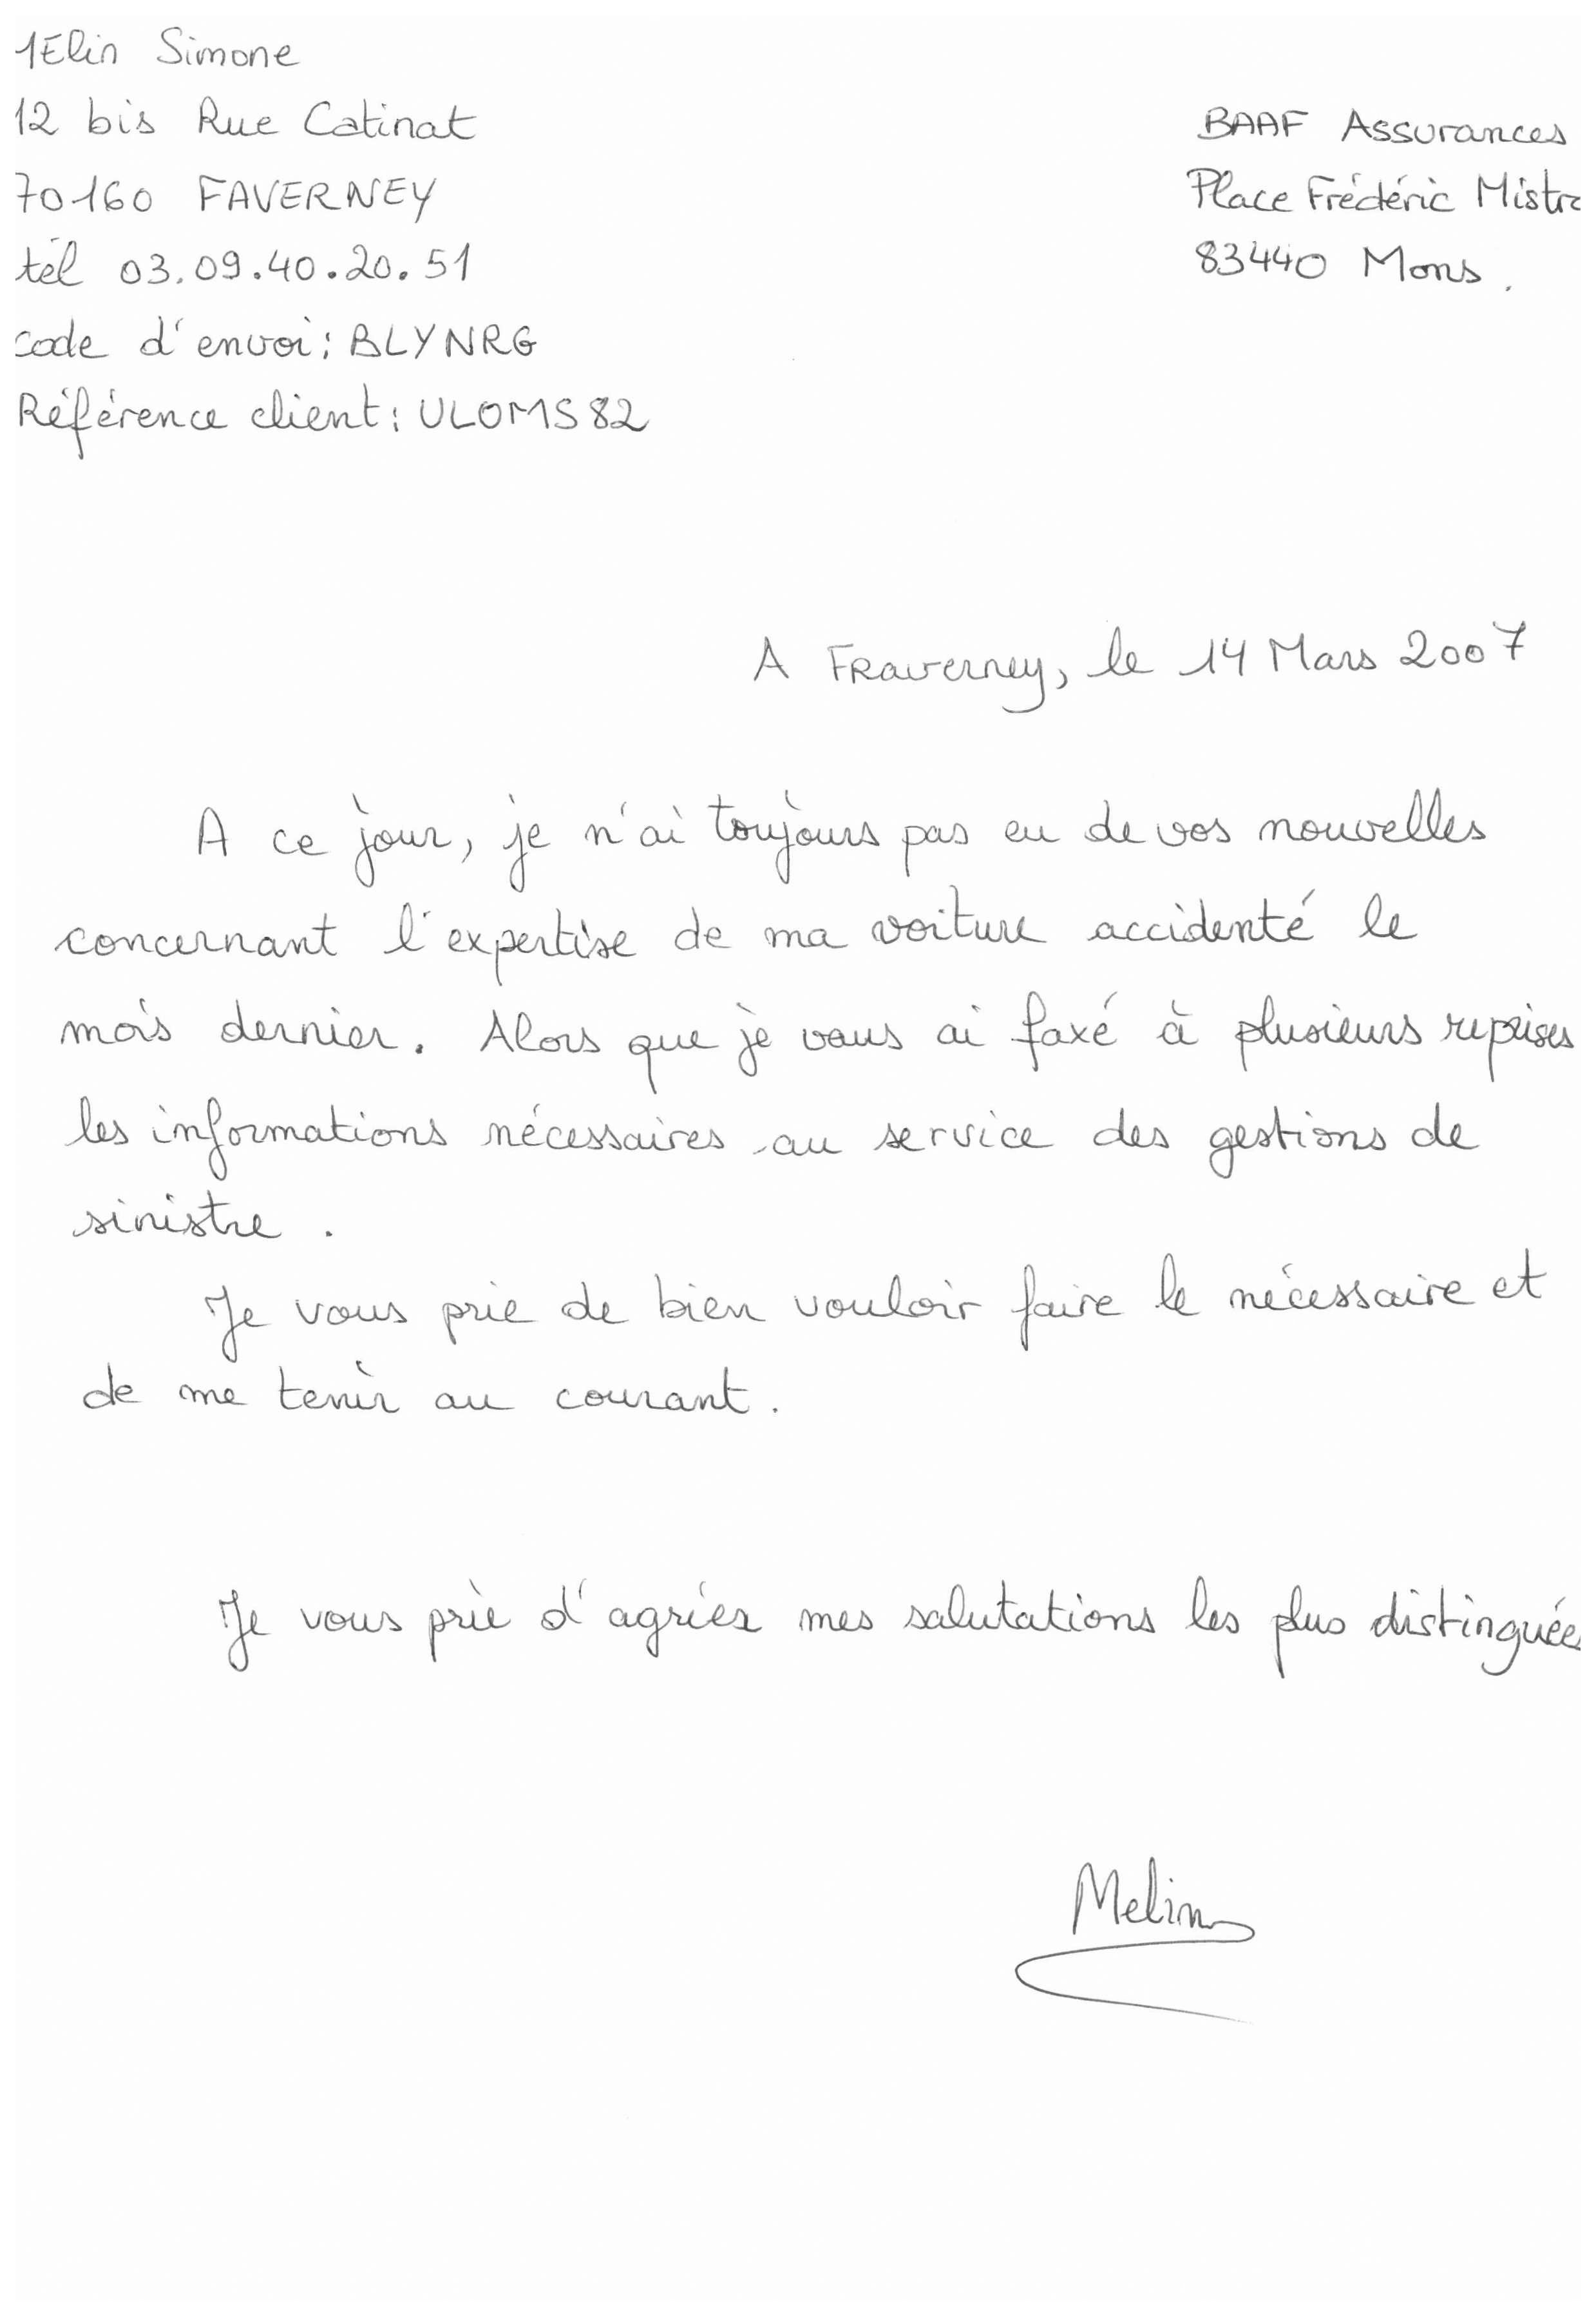 1Elin Simone
12 bis Rue Catinat
70160 FAVERNEY
tél 03.09.40.20.51
code d'envoi: BLYNRG
Référence client: ULOMS82
BAAF Assurances
Place Frédéric Mistr
83440 Mons.
A FRaverney, le 14 Mars 2007
A ce jour, je n'ai toujours pas eu de vos nouvelles
concernant l'expertise de ma voiture accidenté le
mois dernier. Alors que je vous ai faxé à plusieurs reprises
les informations nécessaires au service des gestions de
sinistre.
Je vous prie de bien vouloir faire le nécessaire et
de me tenir au courant.
Je vous prie d'agréer mes salutations les plus distinguées
Melin